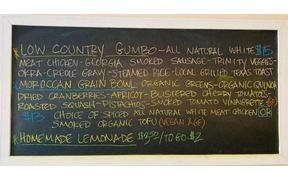 LOW COUNTRY GUMBO - ALL NATURAL WHITE $15
MEAT CHICKEN - GEORGIA SMOKED SAUSAGE - TRINITY VEGGIES -
OKRA - CREOLE GRAVY - STEAMED RICE - LOCAL GRILLED TEXAS TOAST
MOROCCAN GRAIN BOWL - ORGANIC GREENS - ORGANIC QUINOA
DRIED CRANBERRIES - APRICOT - BLISTERED CHERRY TOMATOES -
ROASTED SQUASH - PISTACHIOS - SMOKED TOMATO VINAIGRETTE
$13 CHOICE OF SPICED ALL NATURAL WHITE MEAT CHICKEN OR
SMOKED ORGANIC TOFU (VEGAN &
HOMEMADE LEMONADE TO GO - $2